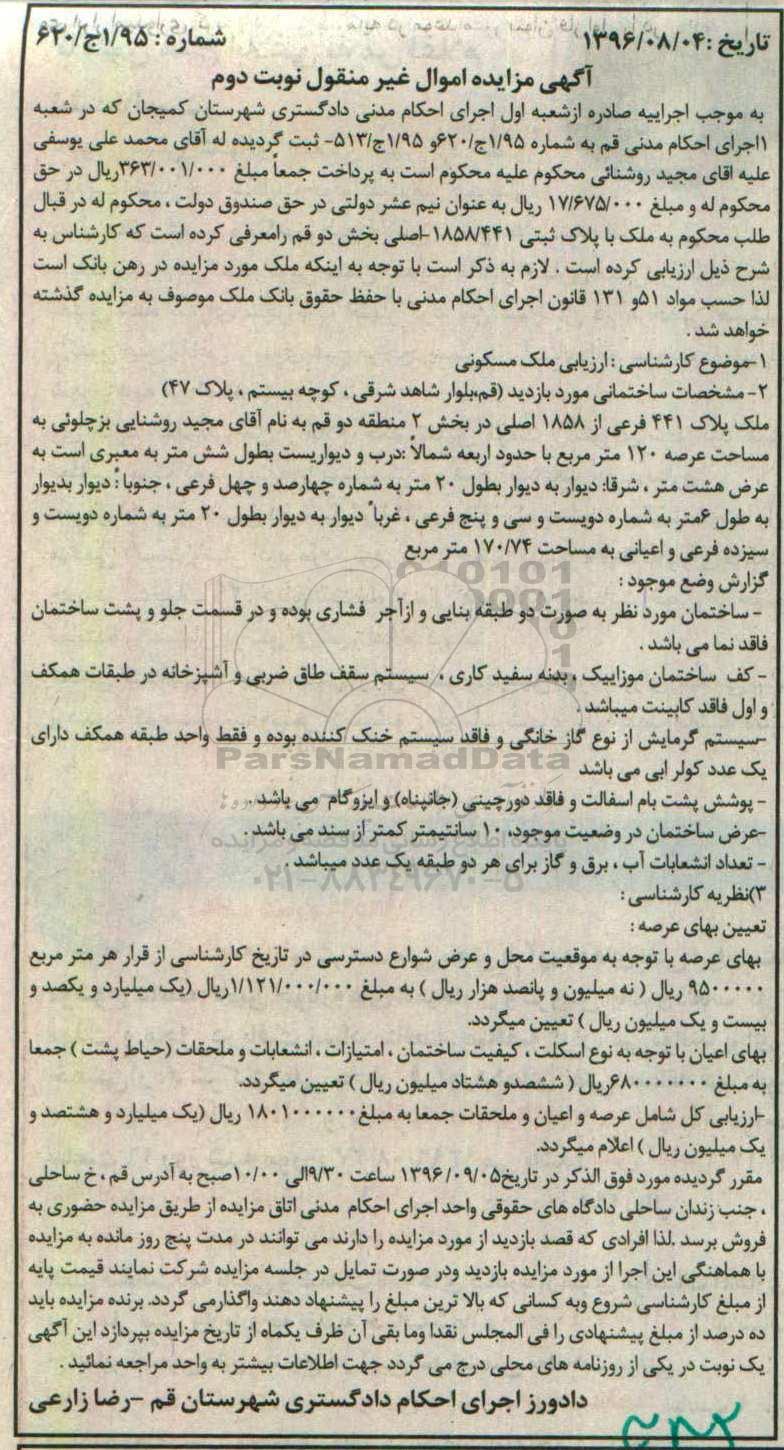 تاریخ :۱۳۹۶/۰۸/۰۴
شماره : ۱/۹۵ج/۶۲۰
آگهی مزایده اموال غیر منقول نوبت دوم
به موجب اجراییه صادره ازشعبه اول اجرای احکام مدنی دادگستری شهرستان کمیجان که در شعبه
۱اجرای احکام مدنی قم به شماره ۱/۹۵ج/۶۲۰و ۱/۹۵ج/۵۱۳- ثبت گردیده له آقای محمد علی یوسفی
علیه اقای مجید روشنائی محکوم علیه محکوم است به پرداخت جمعاً مبلغ ۳۶۳/۰۰۱/۰۰۰ریال در حق
محکوم له و مبلغ ۱۷/۶۷۵/۰۰۰ ریال به عنوان نیم عشر دولتی در حق صندوق دولت ، محکوم له در قبال
طلب محکوم به ملک با پلاک ثبتی ۱۸۵۸/۴۴۱-اصلی بخش دو قم رامعرفی کرده است که کارشناس به
شرح ذیل ارزیابی کرده است . لازم به ذکر است با توجه به اینکه ملک مورد مزایده در رهن بانک است
لذا حسب مواد ۵۱و ۱۳۱ قانون اجرای احکام مدنی با حفظ حقوق بانک ملک موصوف به مزایده گذشته
خواهد شد .
۱-موضوع کارشناسی : ارزیابی ملک مسکونی
۲- مشخصات ساختمانی مورد بازدید (قم،بلوار شاهد شرقی ، کوچه بیستم ، پلاک ۴۷)
ملک پلاک ۴۴۱ فرعی از ۱۸۵۸ اصلی در بخش ۲ منطقه دو قم به نام آقای مجید روشنایی بزچلوئی به
مساحت عرصه ۱۲۰ متر مربع با حدود اربعه شمالاً :درب و دیواریست بطول شش متر به معبری است به
عرض هشت متر ، شرقا: دیوار به دیوار بطول ۲۰ متر به شماره چهارصد و چهل فرعی ، جنوباً : دیوار بدیوار
به طول ۶متر به شماره دویست و سی و پنج فرعی ، غرباً دیوار به دیوار بطول ۲۰ متر به شماره دویست و
سیزده فرعی و اعیانی به مساحت ۱۷۰/۷۴ متر مربع
گزارش وضع موجود :
- ساختمان مورد نظر به صورت دو طبقه بنایی و ازآجر فشاری بوده و در قسمت جلو و پشت ساختمان
فاقد نما می باشد .
- کف ساختمان موزاییک ، بدنه سفید کاری ، سیستم سقف طاق ضربی و آشپزخانه در طبقات همکف
و اول فاقد کابینت میباشد .
-سیستم گرمایش از نوع گاز خانگی و فاقد سیستم خنک کننده بوده و فقط واحد طبقه همکف دارای
یک عدد کولر ابی می باشد
ParsNamadData
- پوشش پشت بام اسفالت و فاقد دورچینی (جانپناه) و ایزوگام می باشد .
-عرض ساختمان در وضعیت موجود، ۱۰ سانتیمتر کمتر از سند می باشد .
- تعداد انشعابات آب ، برق و گاز برای هر دو طبقه یک عدد میباشد .
۰۲۱-۸۸۳۴۹۶۷۰-۵
۳)نظریه کارشناسی :
تعیین بهای عرصه :
بهای عرصه با توجه به موقعیت محل و عرض شوارع دسترسی در تازیخ کارشناسی از قرار هر متر مربع
۹۵۰۰۰۰۰ ریال ( نه میلیون و پانصد هزار ریال ) به مبلغ ۱/۱۲۱/۰۰۰/۰۰۰ریال (یک میلیارد و یکصد و
بیست و یک میلیون ریال ) تعیین میگردد.
بهای اعیان با توجه به نوع اسکلت ، کیفیت ساختمان ، امتیازات ، انشعابات و ملحقات (حیاط پشت ) جمعا
به مبلغ ۶۸۰۰۰۰۰۰۰ریال ( ششصدو هشتاد میلیون ریال ) تعیین میگردد.
-ارزیابی کل شامل عرصه و اعیان و ملحقات جمعا به مبلغ۱۸۰۱۰۰۰۰۰۰ ریال (یک میلیارد و هشتصد و
یک میلیون ریال ) اعلام میگردد.
مقرر گردیده مورد فوق الذکر در تاریخ۱۳۹۶/۰۹/۰۵ ساعت ۹/۳۰الی ۱۰/۰۰صبح به آدرس قم ، خ ساحلی
، جنب زندان ساحلی دادگاه های حقوقی واحد اجرای احکام مدنی اتاق مزایده از طریق مزایده حضوری به
فروش برسد .لذا افرادی که قصد بازدید از مورد مزایده را دارند می توانند در مدت پنج روز مانده به مزایده
با هماهنگی این اجرا از مورد مزایده بازدید ودر صورت تمایل در جلسه مزایده شرکت نمایند قیمت پایه
از مبلغ کارشناسی شروع وبه کسانی که بالا ترین مبلغ را پیشنهاد دهند واگذارمی گردد. برنده مزایده باید
ده درصد از مبلغ پیشنهادی را فی المجلس نقدا وما بقی آن ظرف یکماه از تاریخ مزایده بپردازد این آگهی
یک نوبت در یکی از روزنامه های محلی درج می گردد جهت اطلاعات بیشتر به واحد مراجعه نمائید .
دادورز اجرای احکام دادگستری شهرستان قم -رضا زارعی